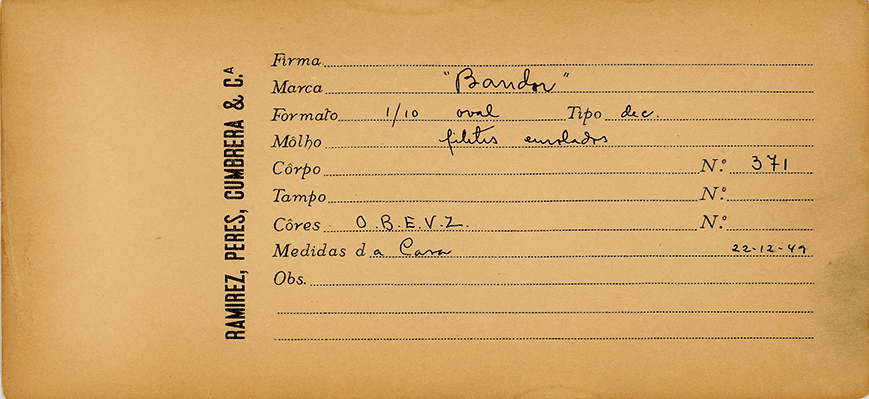 RAMIREZ, PERES, CUMBRERA & C.A
Firma
Marca "Bandor"
Formato 1/10 oval Tipo dec.
Môlho filetes enrolados
Côrpo N.º 371
Tampo N.º
Côres O.B.E.V.Z. N.º
Medidas da Casa 22-12-49
Obs.